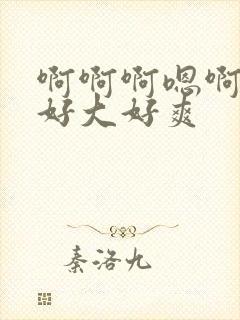 啊啊啊嗯啊
好大好爽
秦洛九